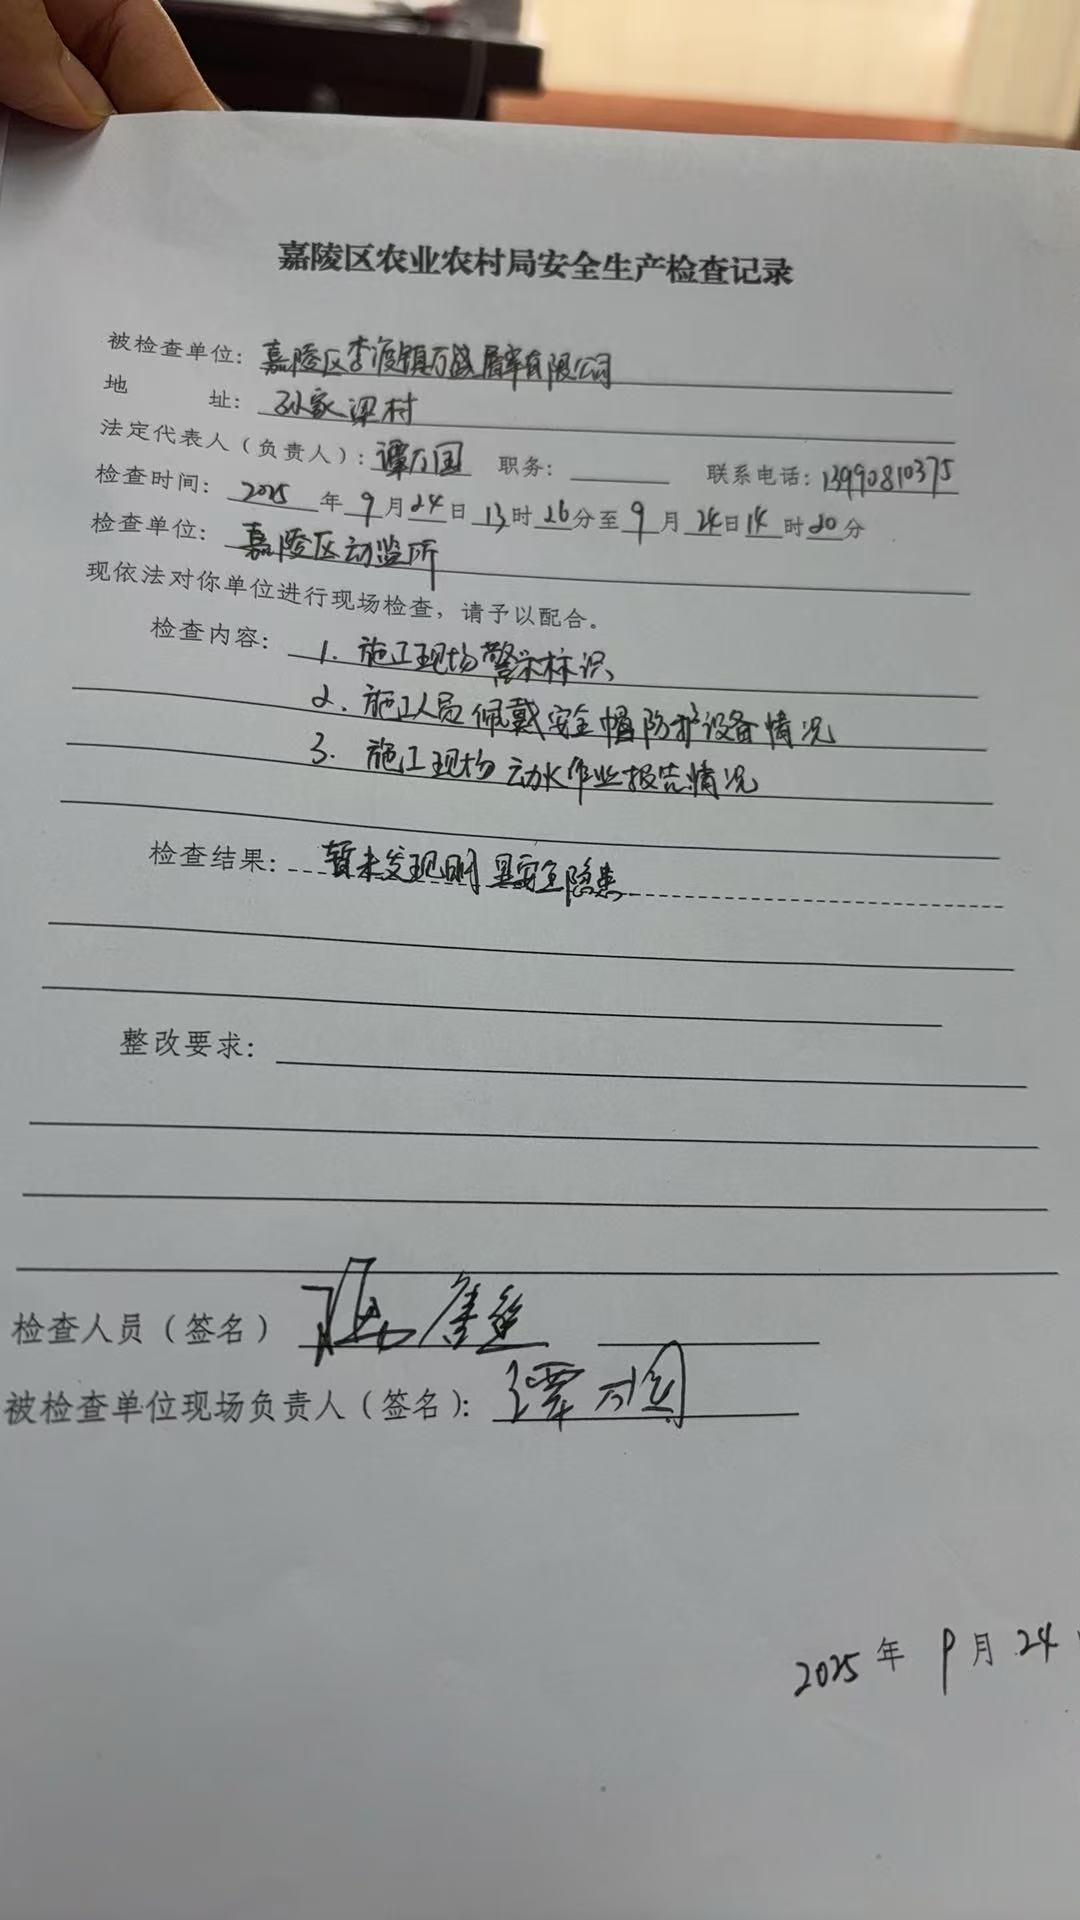 嘉陵区农业农村局安全生产检查记录
被检查单位：嘉陵区李渡镇万盛屠宰有限公司
地 址：孙家梁村
法定代表人（负责人）：谭万国 职务： 联系电话：13990810375
检查时间：2025年9月24日13时26分至9月24日14时20分
检查单位：嘉陵区动监所
现依法对你单位进行现场检查，请予以配合。
检查内容：1. 施工现场警示标识
2. 施工人员佩戴安全帽防护设备情况
3. 施工现场动火作业报告情况
检查结果：暂未发现明显安全隐患
整改要求：
检查人员（签名）
被检查单位现场负责人（签名）：谭万国
2025年9月24